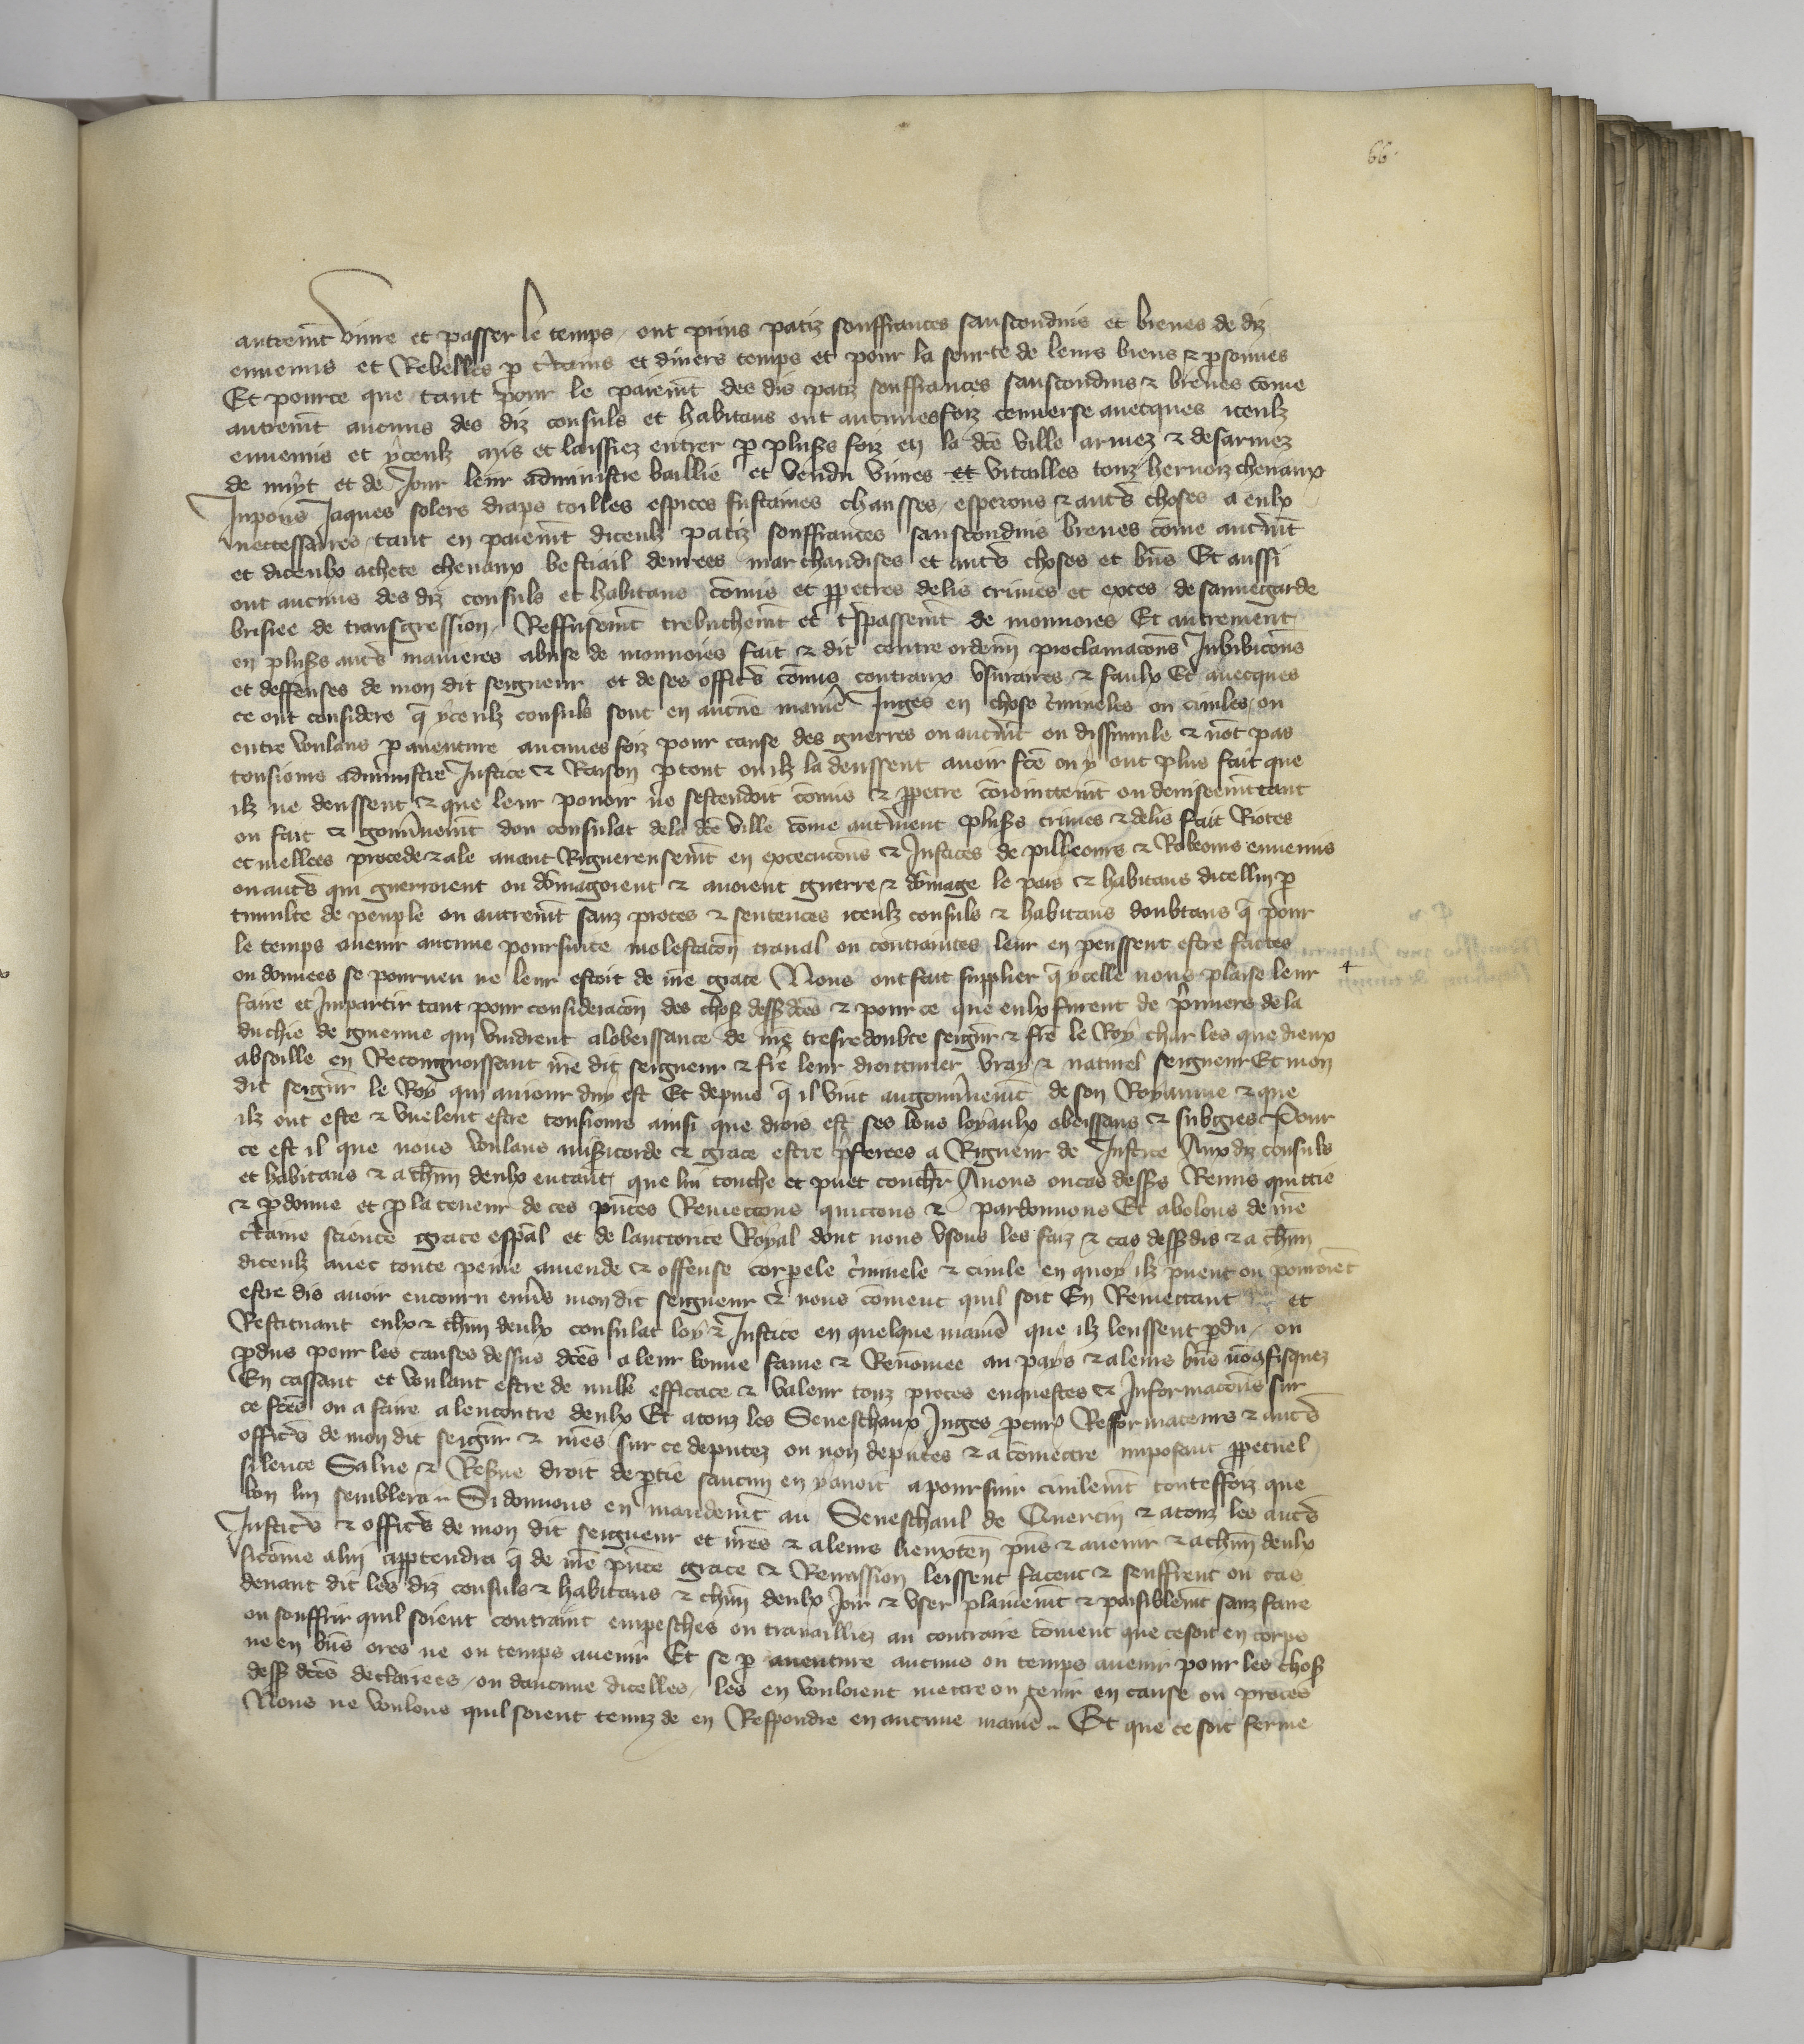 66
autrem̃t vivre et passer le temps / ont prins patiz souffrances saufconduis et brieves de diz
ennemis et Rebelles p c̃tains et divers temps et pour la seurte de leurs biens ⁊ p̃sonnes
Et pource que tant pour le paiem̃t des dis patiz souffrances saufconduis ⁊ brieves cõme
autrem̃t aucuns des diz consuls et habitans ont aucunesfoiz converse avecques iceulz
ennemis et yceulz mis et laissiez entrer p plus̃s foiz en la dc̃e ville armez ⁊ desarmez
de nuyt et de Jour leur administre baillie et vendu vivres et vitailles touz hernoiz chevaux
Jupons Jaques solers draps toilles espices fustaines chausses / esperons ⁊ autr̃s choses a eulx
neccessaires / tant en paiem̃t diceulz patiz souffrances saufconduis brieves cõme autrem̃t
et diceulx achete chevaux bestiail denrees marchandises et autr̃s choses et bñs Et aussi
ont aucuns des diz consuls et habitans cõmis et ppetres delis crimes et exces / de sauvegarde
brisiee de transgression / Reffusem̃t trebuchem̃t et t̃spassem̃t de monnoies Et autrement
en plus̃s autr̃s manieres abuse de monnoies fait ⁊ dit contre ordenñ proclamacõns Inhibicõns
et deffenses de mon dit seigneur et de ses offic̃s cõmis contraux Usuraires ⁊ faulx Et avecques
ce ont considere q̃ yceulz consuls sont en aucũe manie Juges en chose c̃imineles ou civiles / ou
entre voulans p aventure aucunes foiz pour cause des guerres ou autrem̃t ou dissimule ⁊ nõt pas
tousiours administre Justice ⁊ Raison p tout ou ilz la deussent avoir fc̃e ou y ont plus fait que
ilz ne deussent ⁊ que leur povoir ne sestendoit cõmis ⁊ ppetre conioinctem̃t ou deviseem̃t tant
ou fait ⁊ gouv̾nem̃t dou consulat dela dc̃e ville cõme autrement plus̃s crimes ⁊ delis fait Riotes
et mellees procede ⁊ ale avant Riguereusem̃t en excecucõns ⁊ Justices de pilleours ⁊ Robeours ennemis
ou autr̃s qui guerroient ou dõmagoient ⁊ avoient guerre ⁊ dõmage le pais ⁊ habitans dicellui p
tumulte de peuple ou autrem̃t sanz proces ⁊ sentences iceulz consuls ⁊ habitans doubtans q̃ pour
le temps avenir aucune poursuite molestacõn traval ou contraintes leur en peussent estre faictes
ou donnees se pourveu ne leur estoit de nr̃e grace Nous ont fait supplier q̃ ycelle nous plaise leur
faire et Impartir tant pour consideracõn des chos̃ dess̃ dc̃es ⁊ pour ce que eulx furent de p̃miers dela
duchie de guienne qui vindrent a lobeissance de nr̃e tresredoubte seignr̃ ⁊ fr̃e le Roy charles que dieux
absoille en Recongnoissant nr̃e dit seigneur ⁊ fr̃e leur droicturier vray ⁊ naturel seigneur Et mon
dit seignr̃ le Roy qui aujour duy est Et depuis q̃ il vint augouv̾nem̃t de son Royaume ⁊ que
ilz ont este ⁊ vuelent estre tousiours ainsi que drois est ses bons loyaulx obeissans ⁊ subgies Pour
ce est il que nous voulans miss̃icorde ⁊ grace estre p̃ferees a Rigueur de Justice Aux diz consuls
et habitans ⁊ a chũn deulx entant que lui touche et puet touch̃r Avons ou cas dessus Remis quittie
⁊ p donne et p la teneur de ces pñtes Remettons quittons ⁊ pardonnons Et abolons de nr̃e
c̃taine science grace esp̃al et de lauctorite Royal dont nous Usons les faiz ⁊ cas dess̃ dis ⁊ a chũn
diceulz avec toute peine amende ⁊ offense corpele c̃iminele ⁊ civile en quoy ilz puent ou pourroiẽt
estre dis avoir encouru env̾s mon dit seigneur ⁊ nous cõment quil soit En Remettant et
Restituant eulx ⁊ chũn deulx consulat loy ⁊ Justice en quelque manie que ilz leussent p̃du / ou
p̃dus pour les causes dessus dc̃es a leur bonne fame ⁊ Renõmee au pays ⁊ aleurs bñs nõ9fisquez
En cassant et voulant estre de nulle efficace ⁊ valeur touz proces enquestes ⁊ Informacõns sur
ce fc̃es ou a faire a lencontre deulx Et atouz les Seneschaux Juges pcur̃s Refformateurs ⁊ autr̃s
offic̃s de mon dit seignr̃ ⁊ nr̃es sur ce deputez ou non deputes ⁊ a cõmettre imposant ppetuel
silence Salve ⁊ Res̃ve droit de p̃tie saucun en y avoit apoursuir civilem̃t toutesfoiz que
bon lui semblera Si donnons en mandem̃t au Seneschaul de Quercin ⁊ atouz les autr̃s
Justic̃s ⁊ offic̃s de mon dit seigneur et nr̃es ⁊ aleurs lieuxtenñ pñs ⁊ avenir ⁊ achũn deulx
sicõme alui apptendra q̃ de nr̃e pñte grace ⁊ Remission leissent facent ⁊ seuffrent ou cas
devant dit les diz consuls ⁊ habitans ⁊ chũn deulx Joir ⁊ user plainem̃t ⁊ paisiblem̃t sanz faire
ou souffrir quil soient contraint empesches ou travailliez au contraire cõment que cesoit en corps
ne en bñs ores ne ou temps avenir Et se p aventure aucuns ou temps avenir pour les chos̃
dess̃ dc̃es declairees / ou daucune dicelles / les en vouloient mettre ou tenir en cause ou proces
Nous ne voulons quil soient tenuz de en Respondre en aucune manie Et que ce soit ferme